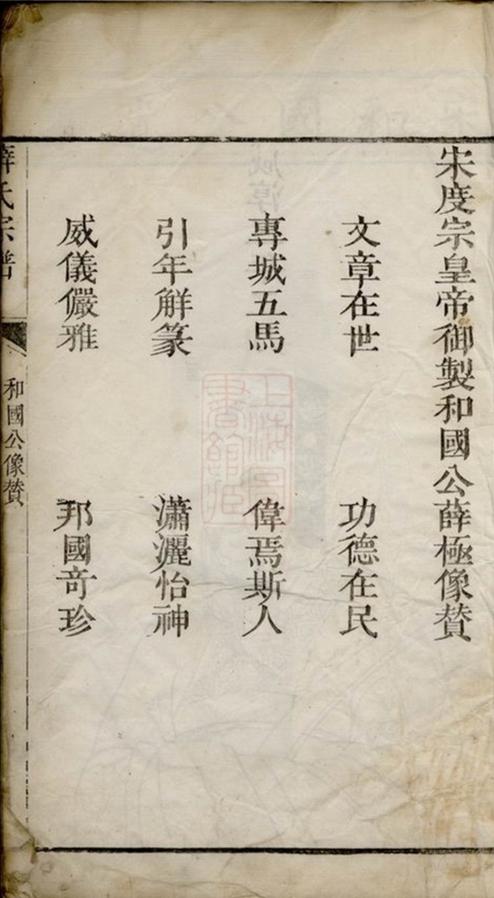 宋度宗皇帝御製和國公薛極像賛
文章在世 功德在民
專城五馬 偉焉斯人
引年觧篆 瀟灑怡神
威儀儼雅 邦國奇珍
薛氏宗譜
和國公像賛
上海圖書館藏